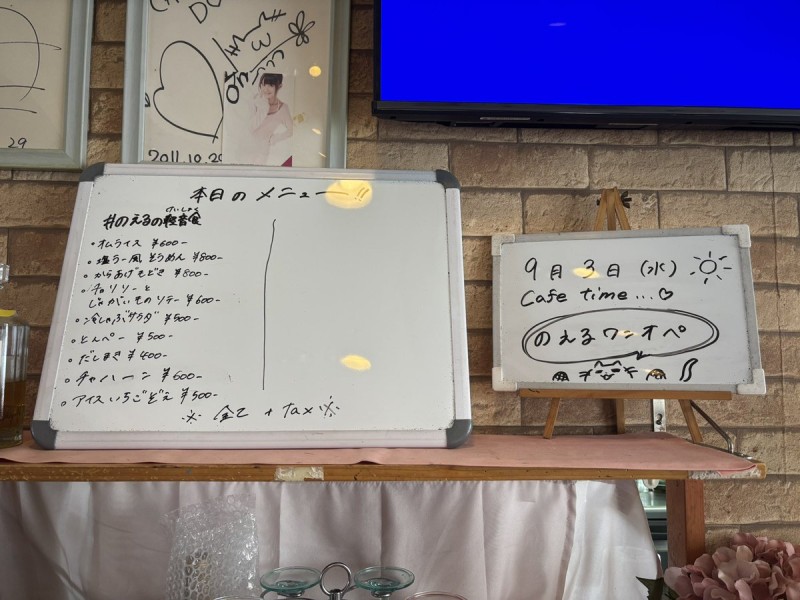 29
DO
2011.10.29
本日のメニュー
#のえるの軽音食
けいしょく
・オムライス ¥600-
・塩ラー風そうめん ¥800-
・からあげもどき ¥800-
・チョリソーと
じゃがいものソテー ¥600-
・冷しゃぶサラダ ¥500-
・とんペー ¥500-
・だしまき ¥400-
・チャーハン ¥600-
・アイスいちごぞえ ¥500-
※ 全て + tax ※
9月3日(水)
Cafe time...♡
のえるワンオペ